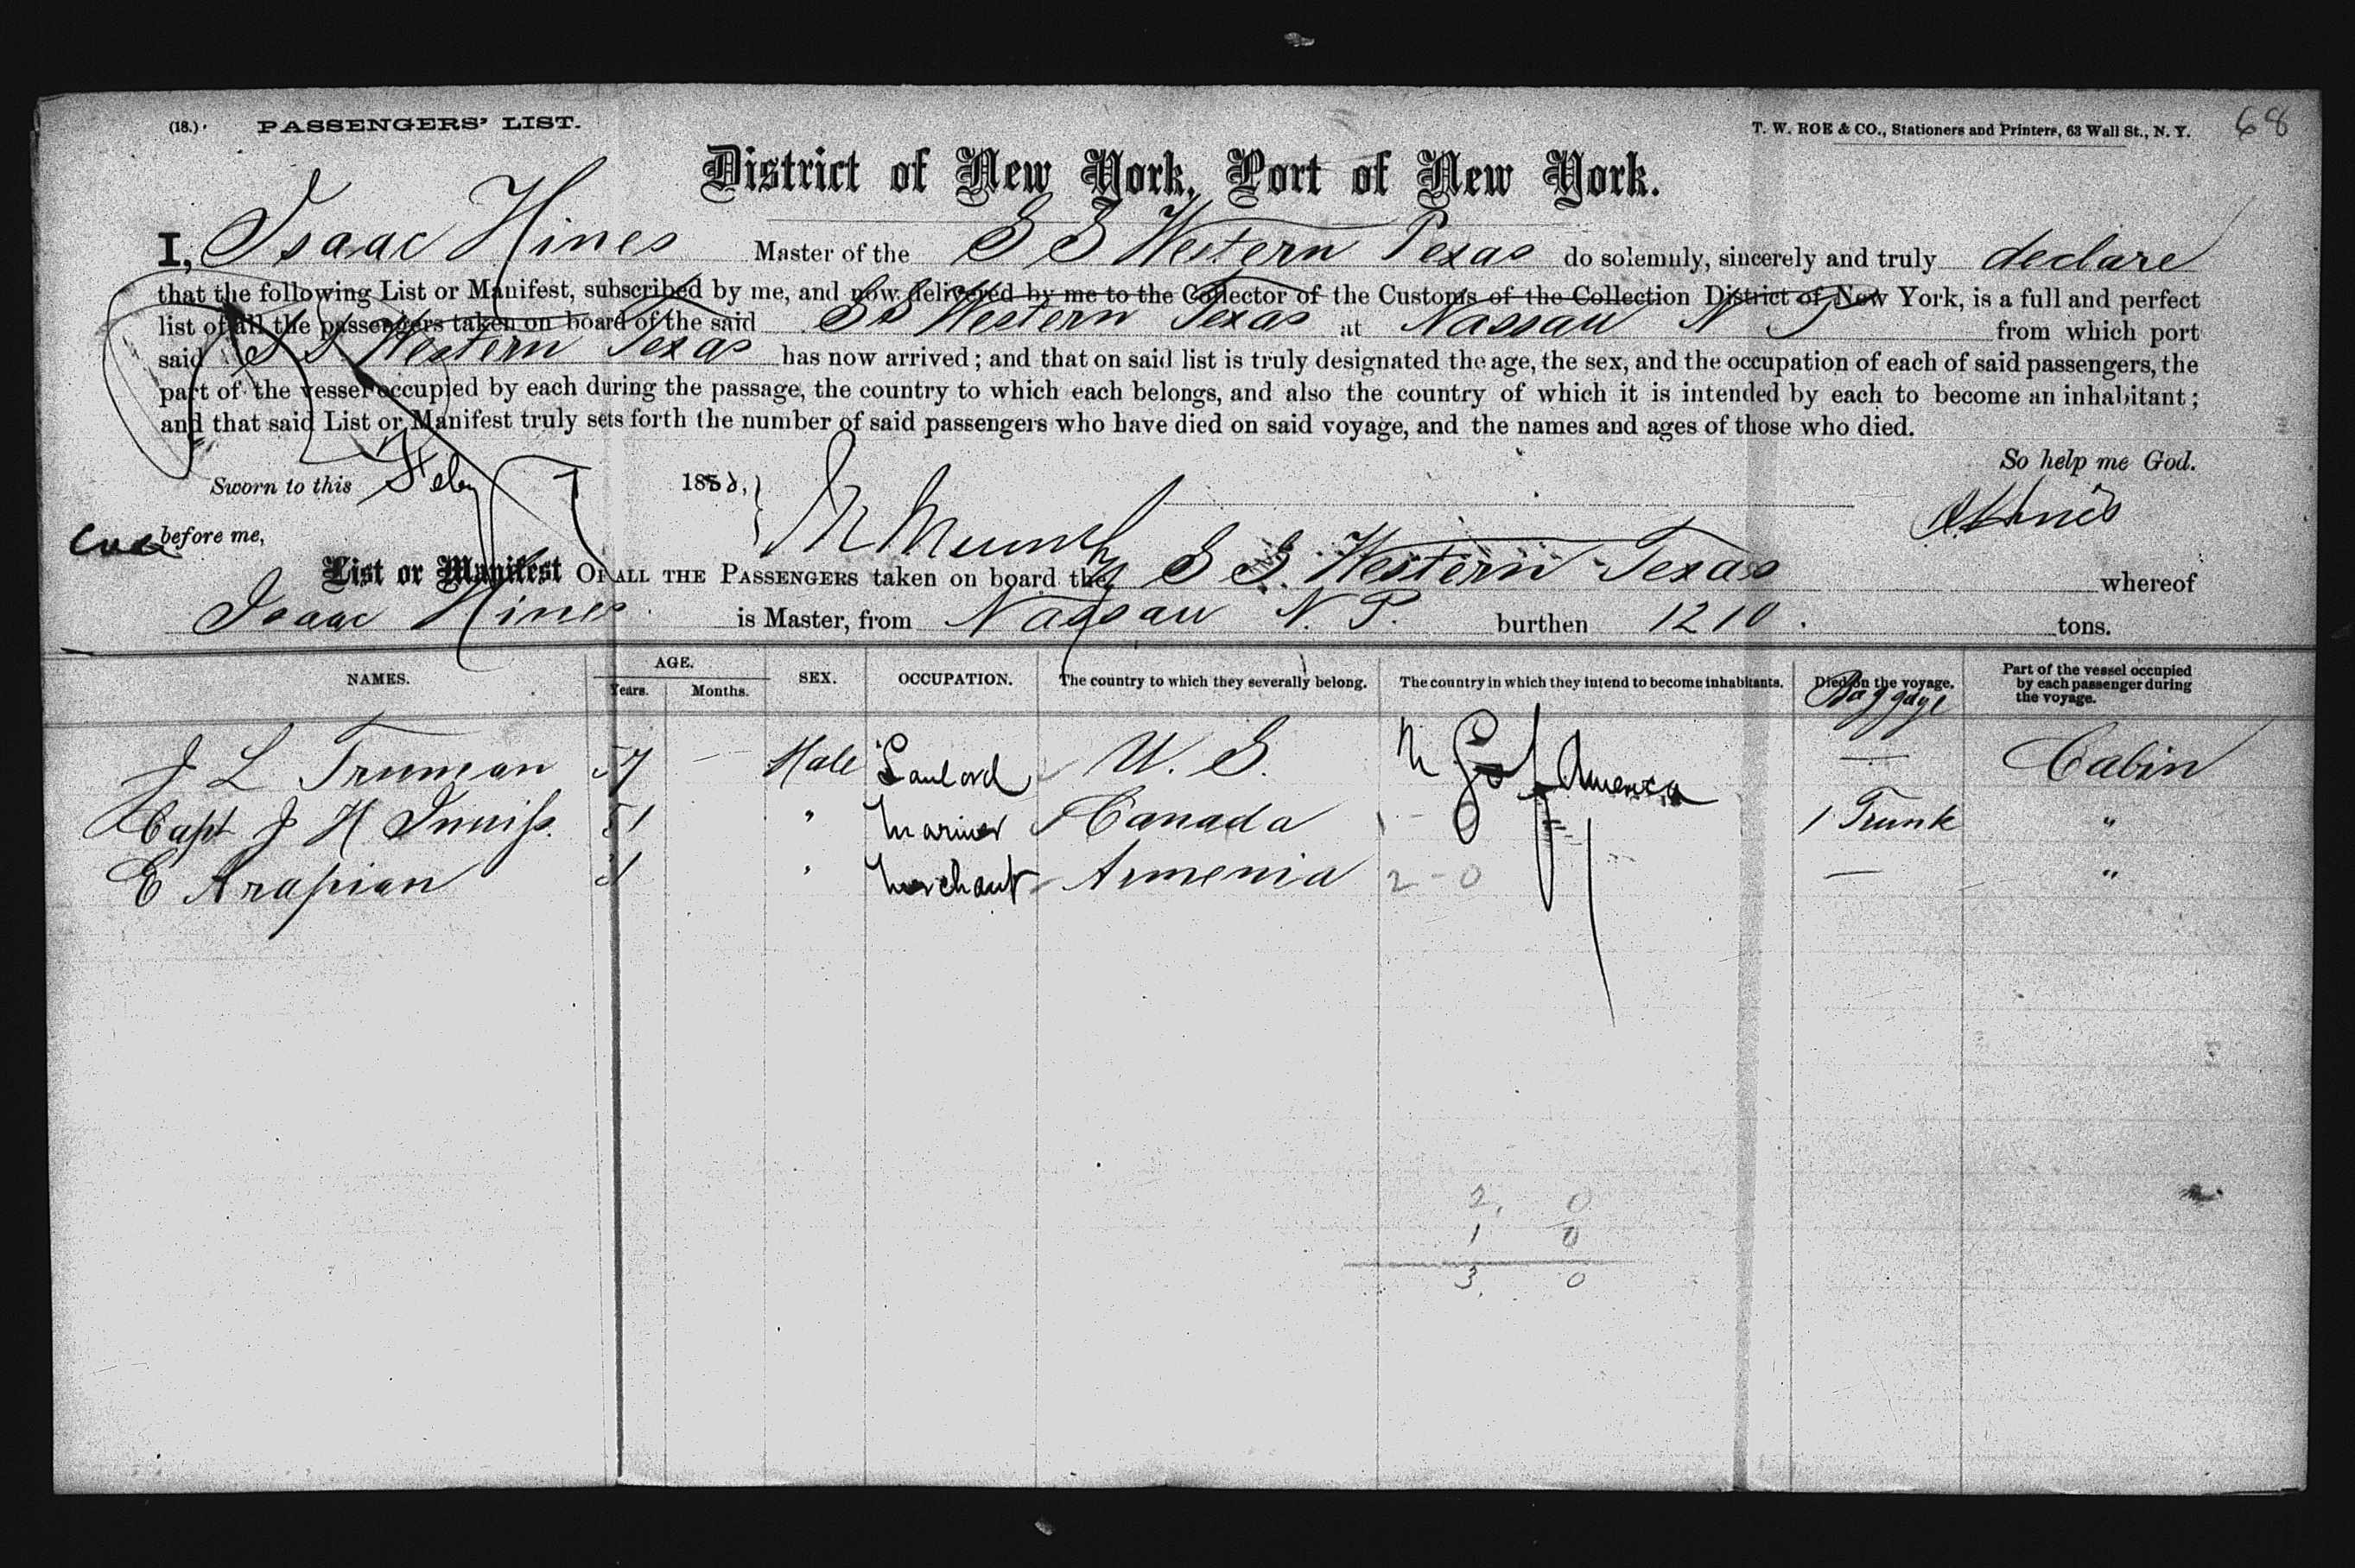 (18.) PASSENGERS' LIST. T. W. ROE & CO., Stationers and Printers, 63 Wall St., N. Y. 68
District of New York, Port of New York.
I, Isaac Hines Master of the S S Western Texas do solemnly, sincerely and truly declare
that the following List or Manifest, subscribed by me, and now delivered by me to the Collector of the Customs of the Collection District of New York, is a full and perfect
list of all the passengers taken on board of the said SS Western Texas at Nassau N P from which port
said S S Western Texas has now arrived; and that on said list is truly designated the age, the sex, and the occupation of each of said passengers, the
part of the vessel occupied by each during the passage, the country to which each belongs, and also the country of which it is intended by each to become an inhabitant;
and that said List or Manifest truly sets forth the number of said passengers who have died on said voyage, and the names and ages of those who died.
So help me God.
Sworn to this Feby 7 188
before me,
List or Manifest OF ALL THE PASSENGERS taken on board the S S. Western Texas whereof
Isaac Hines is Master, from Nassau N. P. burthen 1210. tons.
NAMES. AGE. Years. Months. SEX. OCCUPATION. The country to which they severally belong. The country in which they intend to become inhabitants. Died on the voyage. Baggage Part of the vessel occupied by each passenger during the voyage.
J L Truman 57 — Male U. S. U S of America — Cabin
Capt J H Inniss. 51 " Mariner Canada 1 - 0 1 Trunk "
E Arapian 31 " Merchant Armenia 2 - 0 — "
2. 0
1 0
3. 0